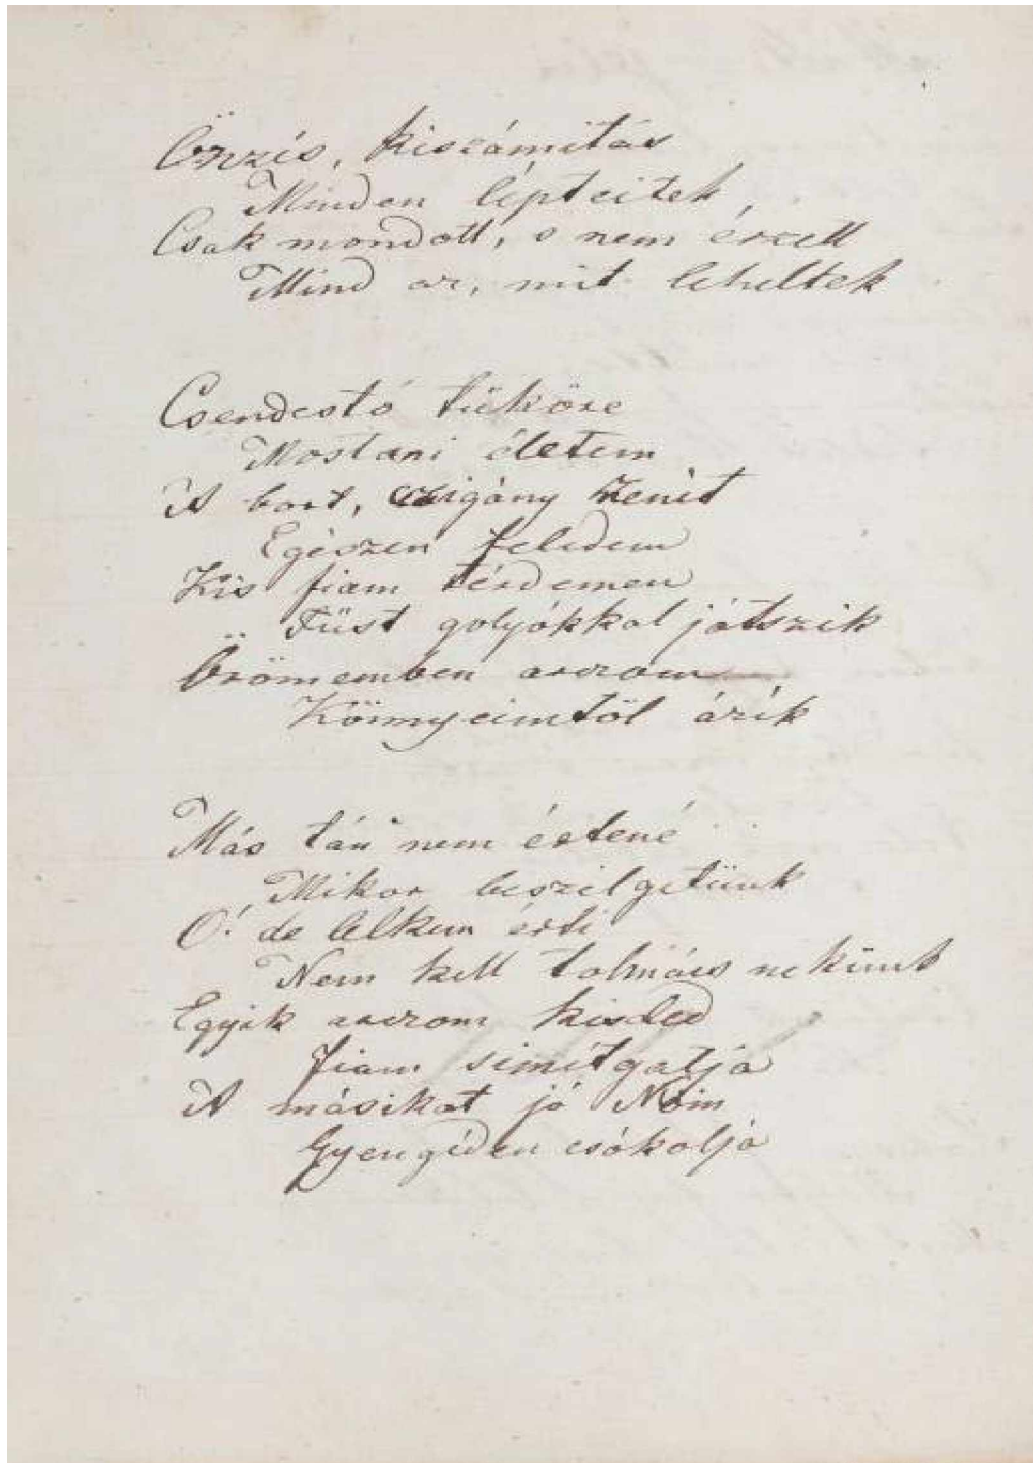 Önzés, kiszámitás
Minden lépteitek,
Csak mondott, s nem érzett
Mind az, mit leheltek
Csendestó tüköre
Mostani életem
A bort, czigány zenét
Egészen feledem
Kis fiam térdemen
Füst golyókkal játszik
Örömemben arczom
Könnyeimtöl ázik
Más tán nem értené
Mikor beszélgetünk
Ó! de lelkem érti
Nem kell tolmács nekünk
Egyik arczom kisded
fiam simítgatja
A másikat jó Nöm
Gyengéden csókolja